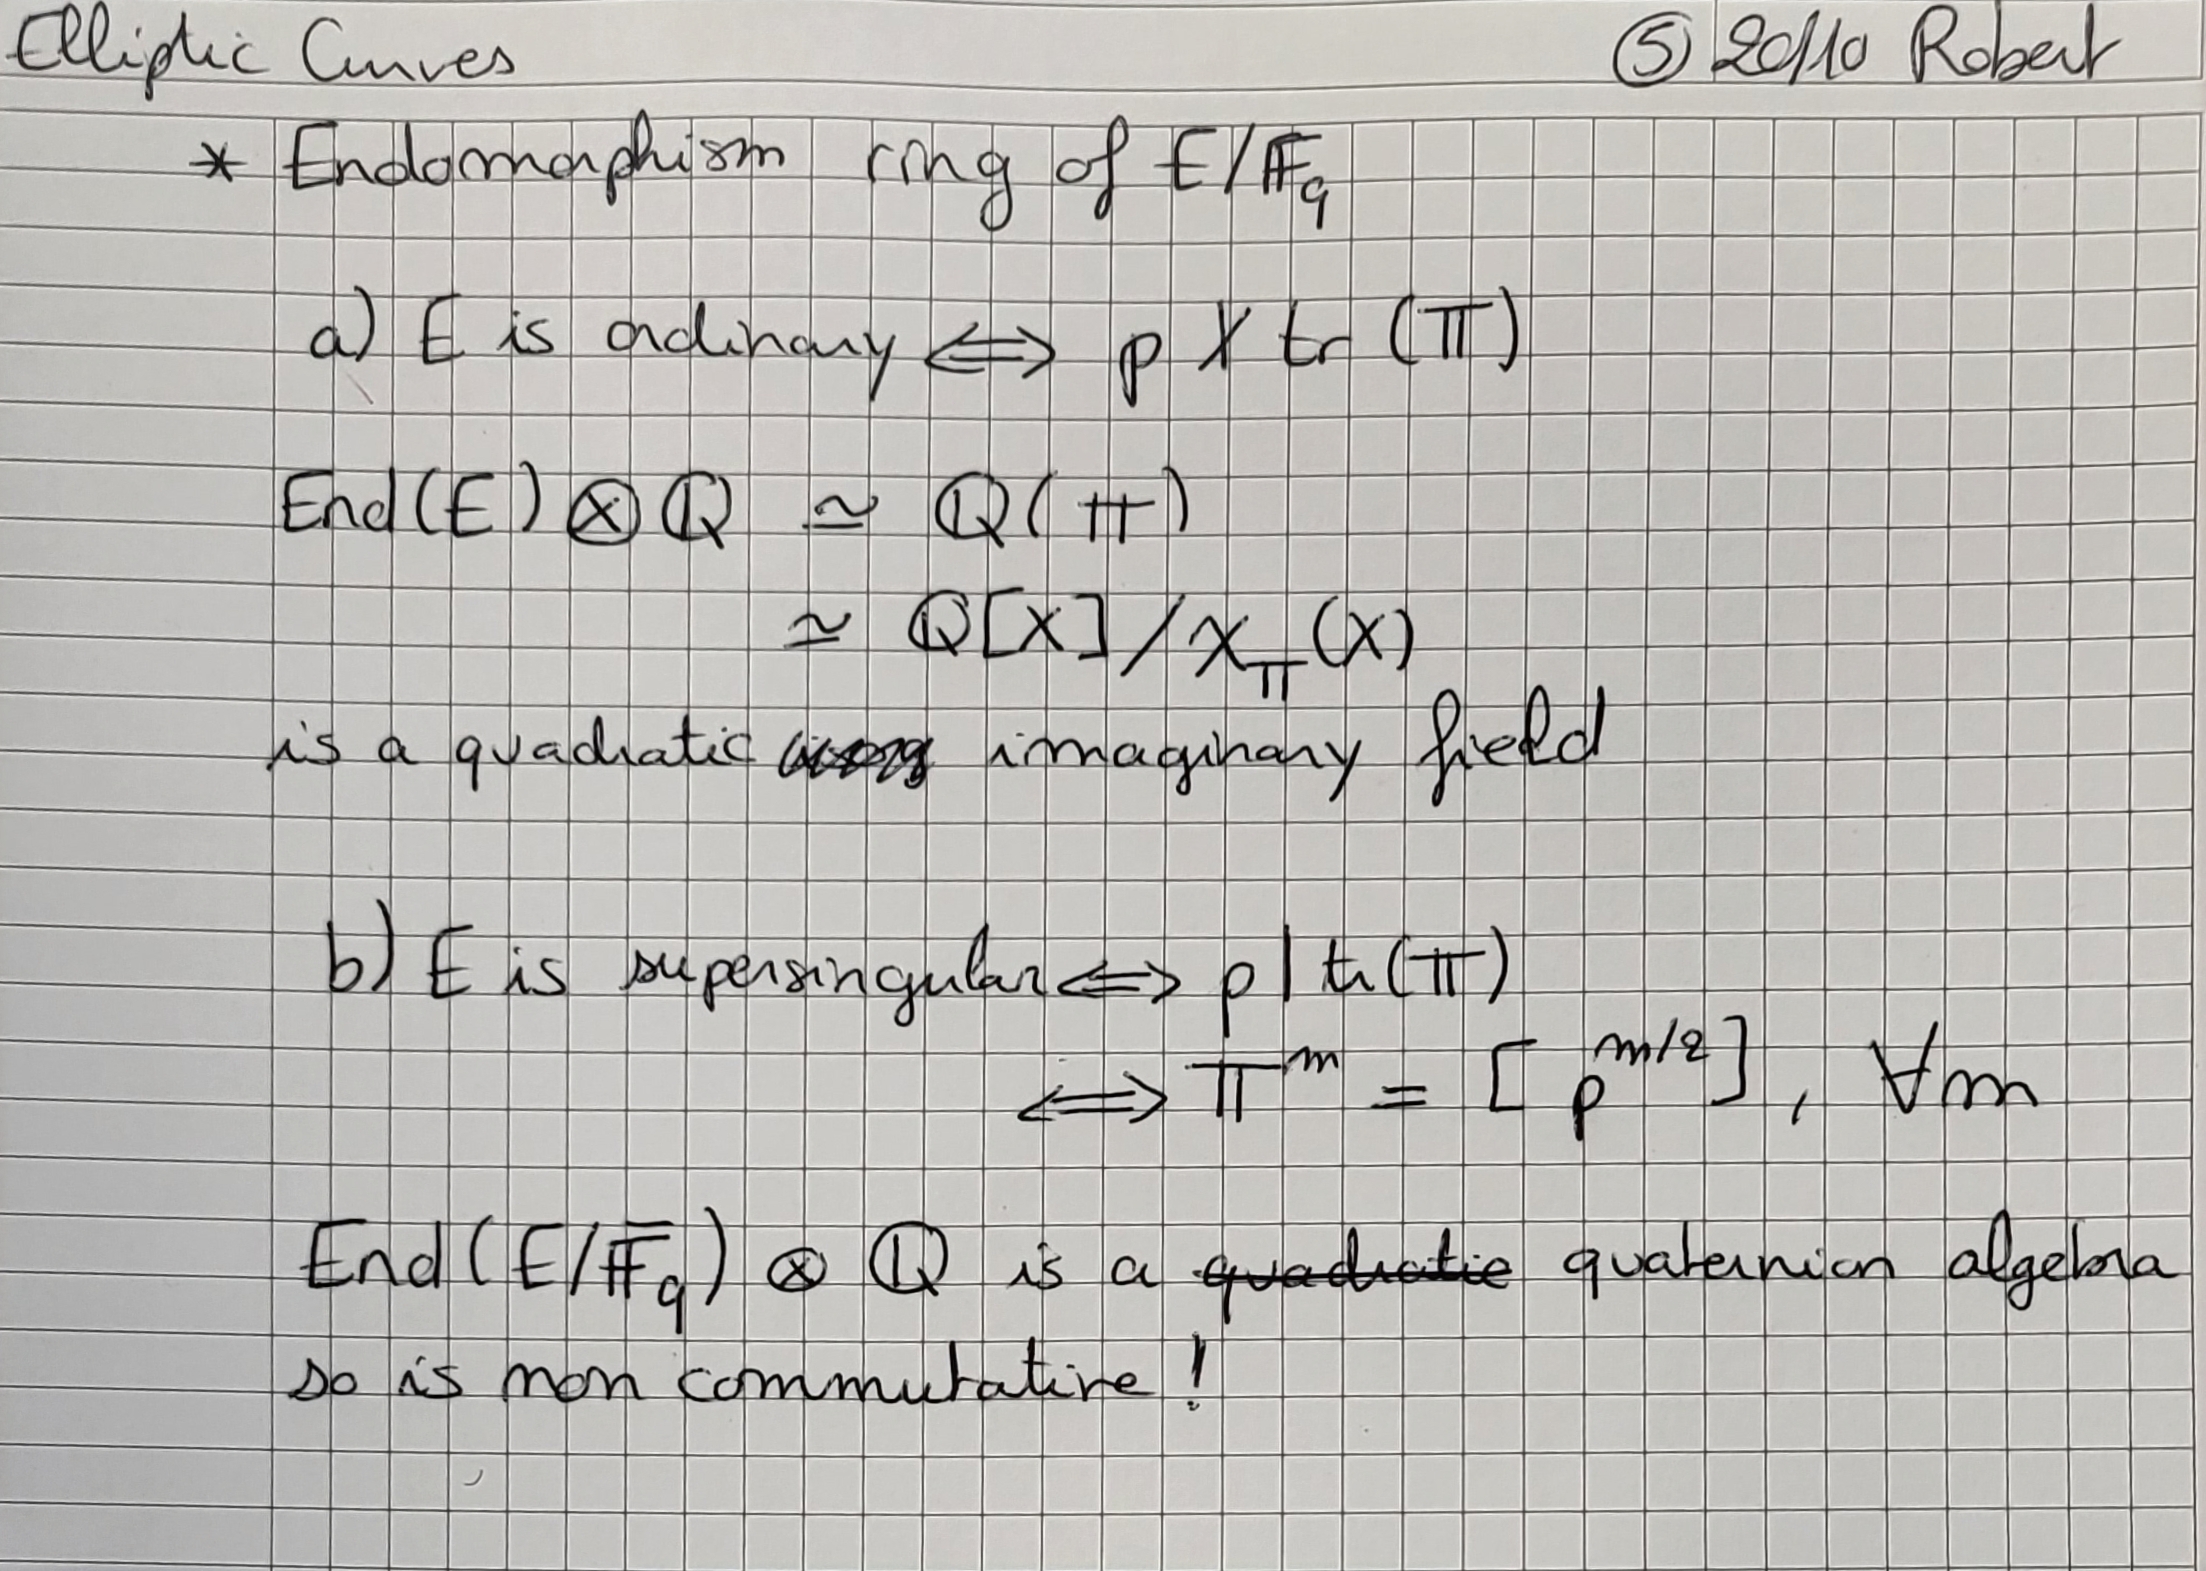 Elliptic Curves ⑤ 20/10 Robert
* Endomorphism ring of E/𝔽_q
a) E is ordinary ⟺ p ∤ tr (π)
End(E) ⊗ ℚ ≃ ℚ(π)
≃ ℚ[X]/χ_π(X)
is a quadratic imaginary field
b) E is supersingular ⟺ p | tr(π)
⟺ π^m = [p^{m/2}], ∀m
End(E/\bar{𝔽}_q) ⊗ ℚ is a ~~quadratic~~ quaternion algebra
so is non commutative !